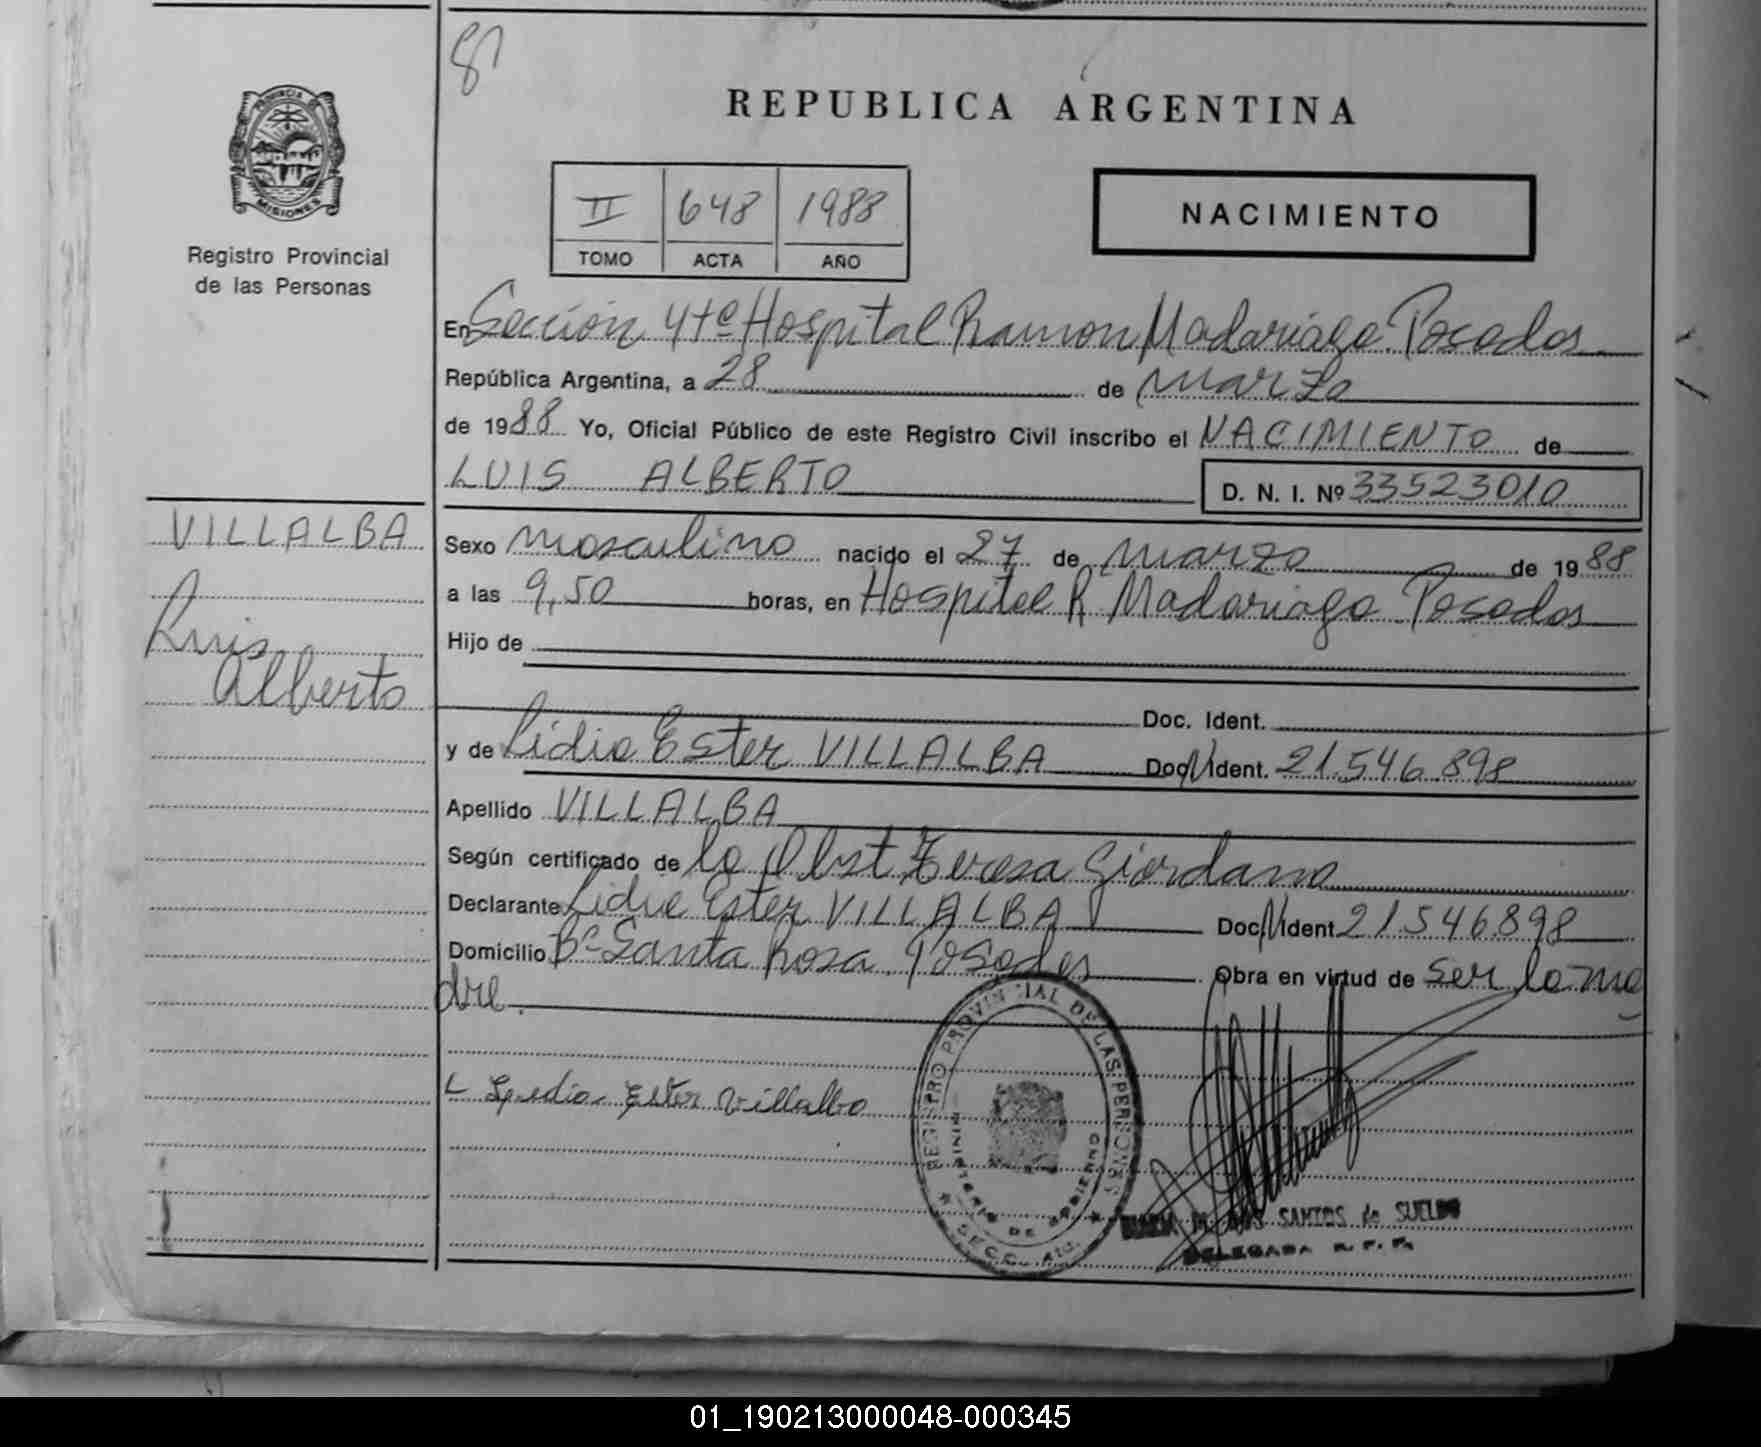 81
REPUBLICA ARGENTINA
PROVINCIA DE
MISIONES
Registro Provincial
de las Personas
II 648 1988
TOMO ACTA AÑO
NACIMIENTO
En Sección 4ta Hospital Ramon Madariaga Posadas
República Argentina, a 28 de marzo
de 1988 Yo, Oficial Público de este Registro Civil inscribo el NACIMIENTO de
LUIS ALBERTO D. N. I. Nº 33523010
VILLALBA
Luis
Alberto
Sexo masculino nacido el 27 de marzo de 1988
a las 9,50 horas, en Hospital R. Madariaga Posadas
Hijo de
Doc. Ident.
y de Lidia Ester VILLALBA Doc. Ident. 21.546.898
Apellido VILLALBA
Según certificado de la Obst. Teresa Giordano
Declarante Lidia Ester VILLALBA Doc. Ident 21546898
Domicilio Bº Santa Rosa Posadas Obra en virtud de ser la ma
dre.
Ester Villalba
REGISTRO PROVINCIAL DE LAS PERSONAS
MINISTERIO DE GOBIERNO
SECC. 4ta.
SANTOS de SUELDO
DELEGADA R. P. P.
01_190213000048-000345